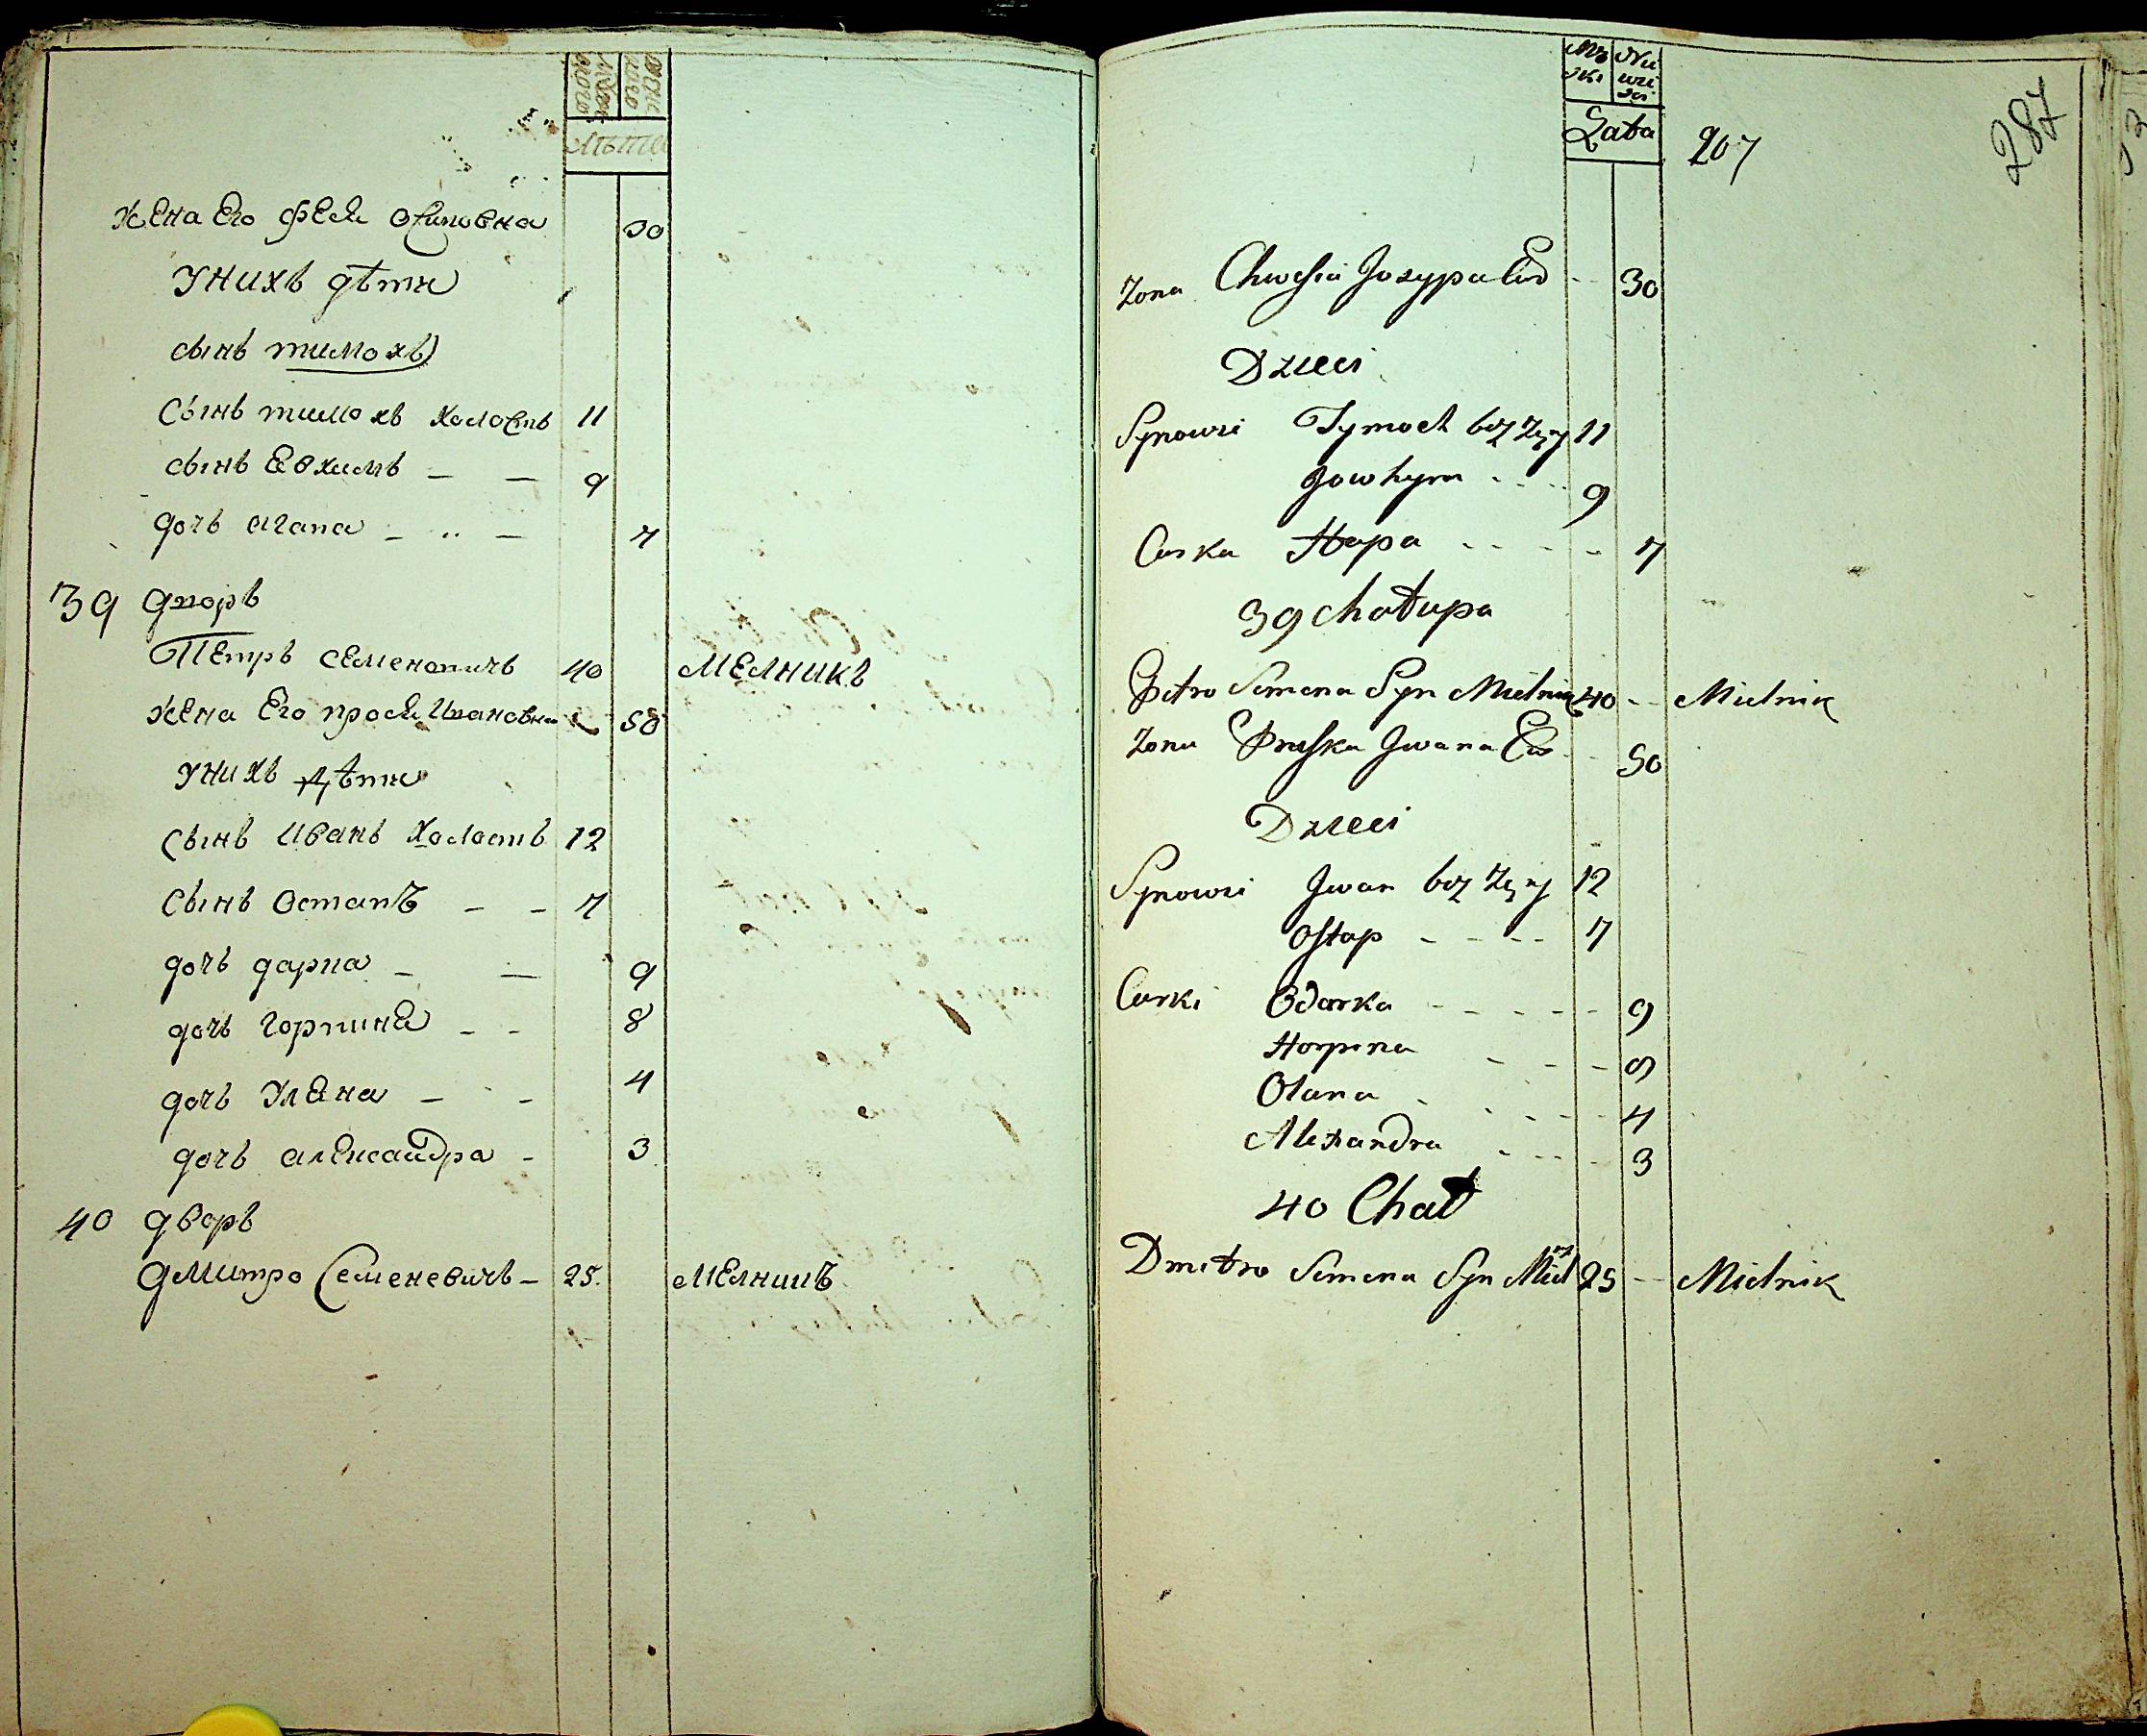 лѣта
жена Его феся Осиповна 30
У нихъ дѣти
сынъ тимохъ
Сынъ тимохъ холостъ 11
сынъ Евхимъ — — 9
дочь агапа — .. — 7
39 дворъ
Петръ семеновичъ 40 мелникъ
жена Его прося Ивановна 50
У нихъ дѣти
Сынъ Иванъ холостъ 12
Сынъ Остапъ — — 7
дочь дария — — 9
дочь горпина — - 8
дочь Уляна — - 4
дочь александра - 3
40 дворъ
дмитро Семеневичъ — 25. мелникъ
Lata 207
287
Żona Chwesia Jozypa Cur -- 30
Dzieci
Synowie Tymoch bez żęny 11
Jowhym - - - - 9
Curka Hapa - - - - - 7
39 chałupa
Petro Semena Syn Mielnik 40 -- Mielnik
Żona Praska Jwana Cur -- 50
Dzieci
Synowie Jwan bez żęny 12
Ostap - - - - 7
Curki Odarka - - - - - - 9
Horpina - - - - 8
Olana - - - - - 4
Alexandra - - - - 3
40 Chat
Dmitro Semena Syn Miel 25 -- Mielnik